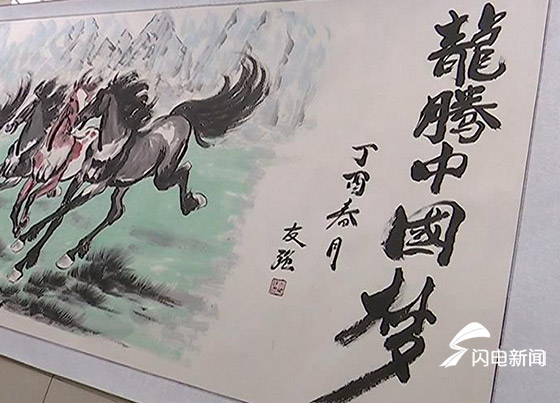 龍騰中國梦
丁酉春月
友强
闪电新闻